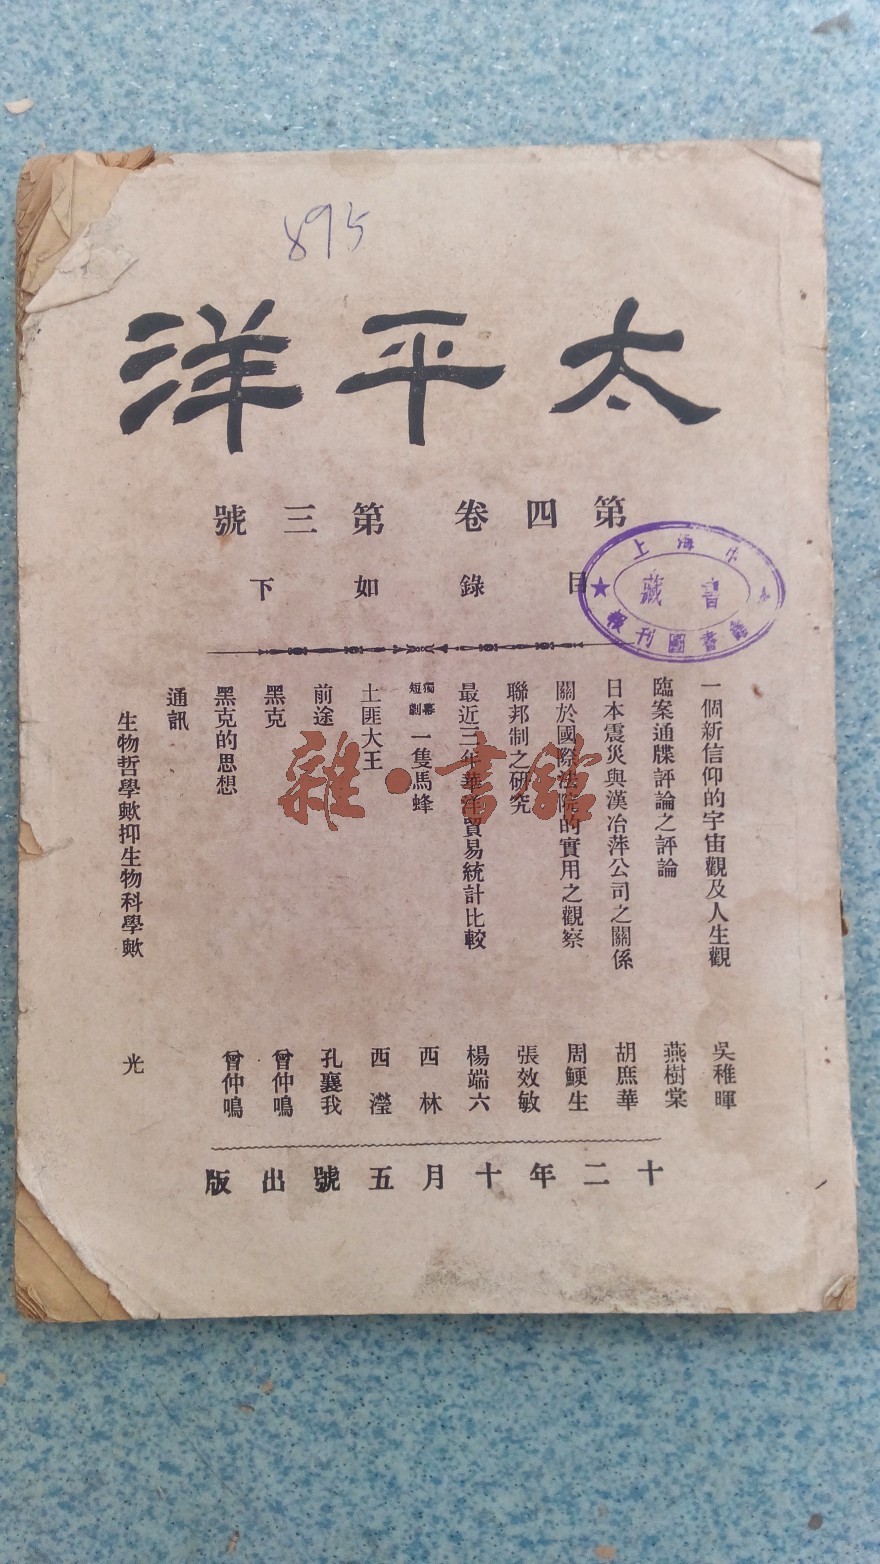 895
太平洋
第四卷 第三號
目錄如下
上海
書藏
報刊圖書館
一個新信仰的宇宙觀及人生觀 吳稚暉
臨案通牒評論之評論 燕樹棠
日本震災與漢冶萍公司之關係 胡庶華
關於國際法院的實用之觀察 周鯁生
聯邦制之研究 張效敏
最近三年華洋貿易統計比較 楊端六
獨幕短劇 一隻馬蜂 西林
土匪大王 西瀅
前途 孔襄我
黑克 曾仲鳴
黑克的思想 曾仲鳴
通訊
生物哲學歟抑生物科學歟 光
十二年十月五號出版
雜·書館